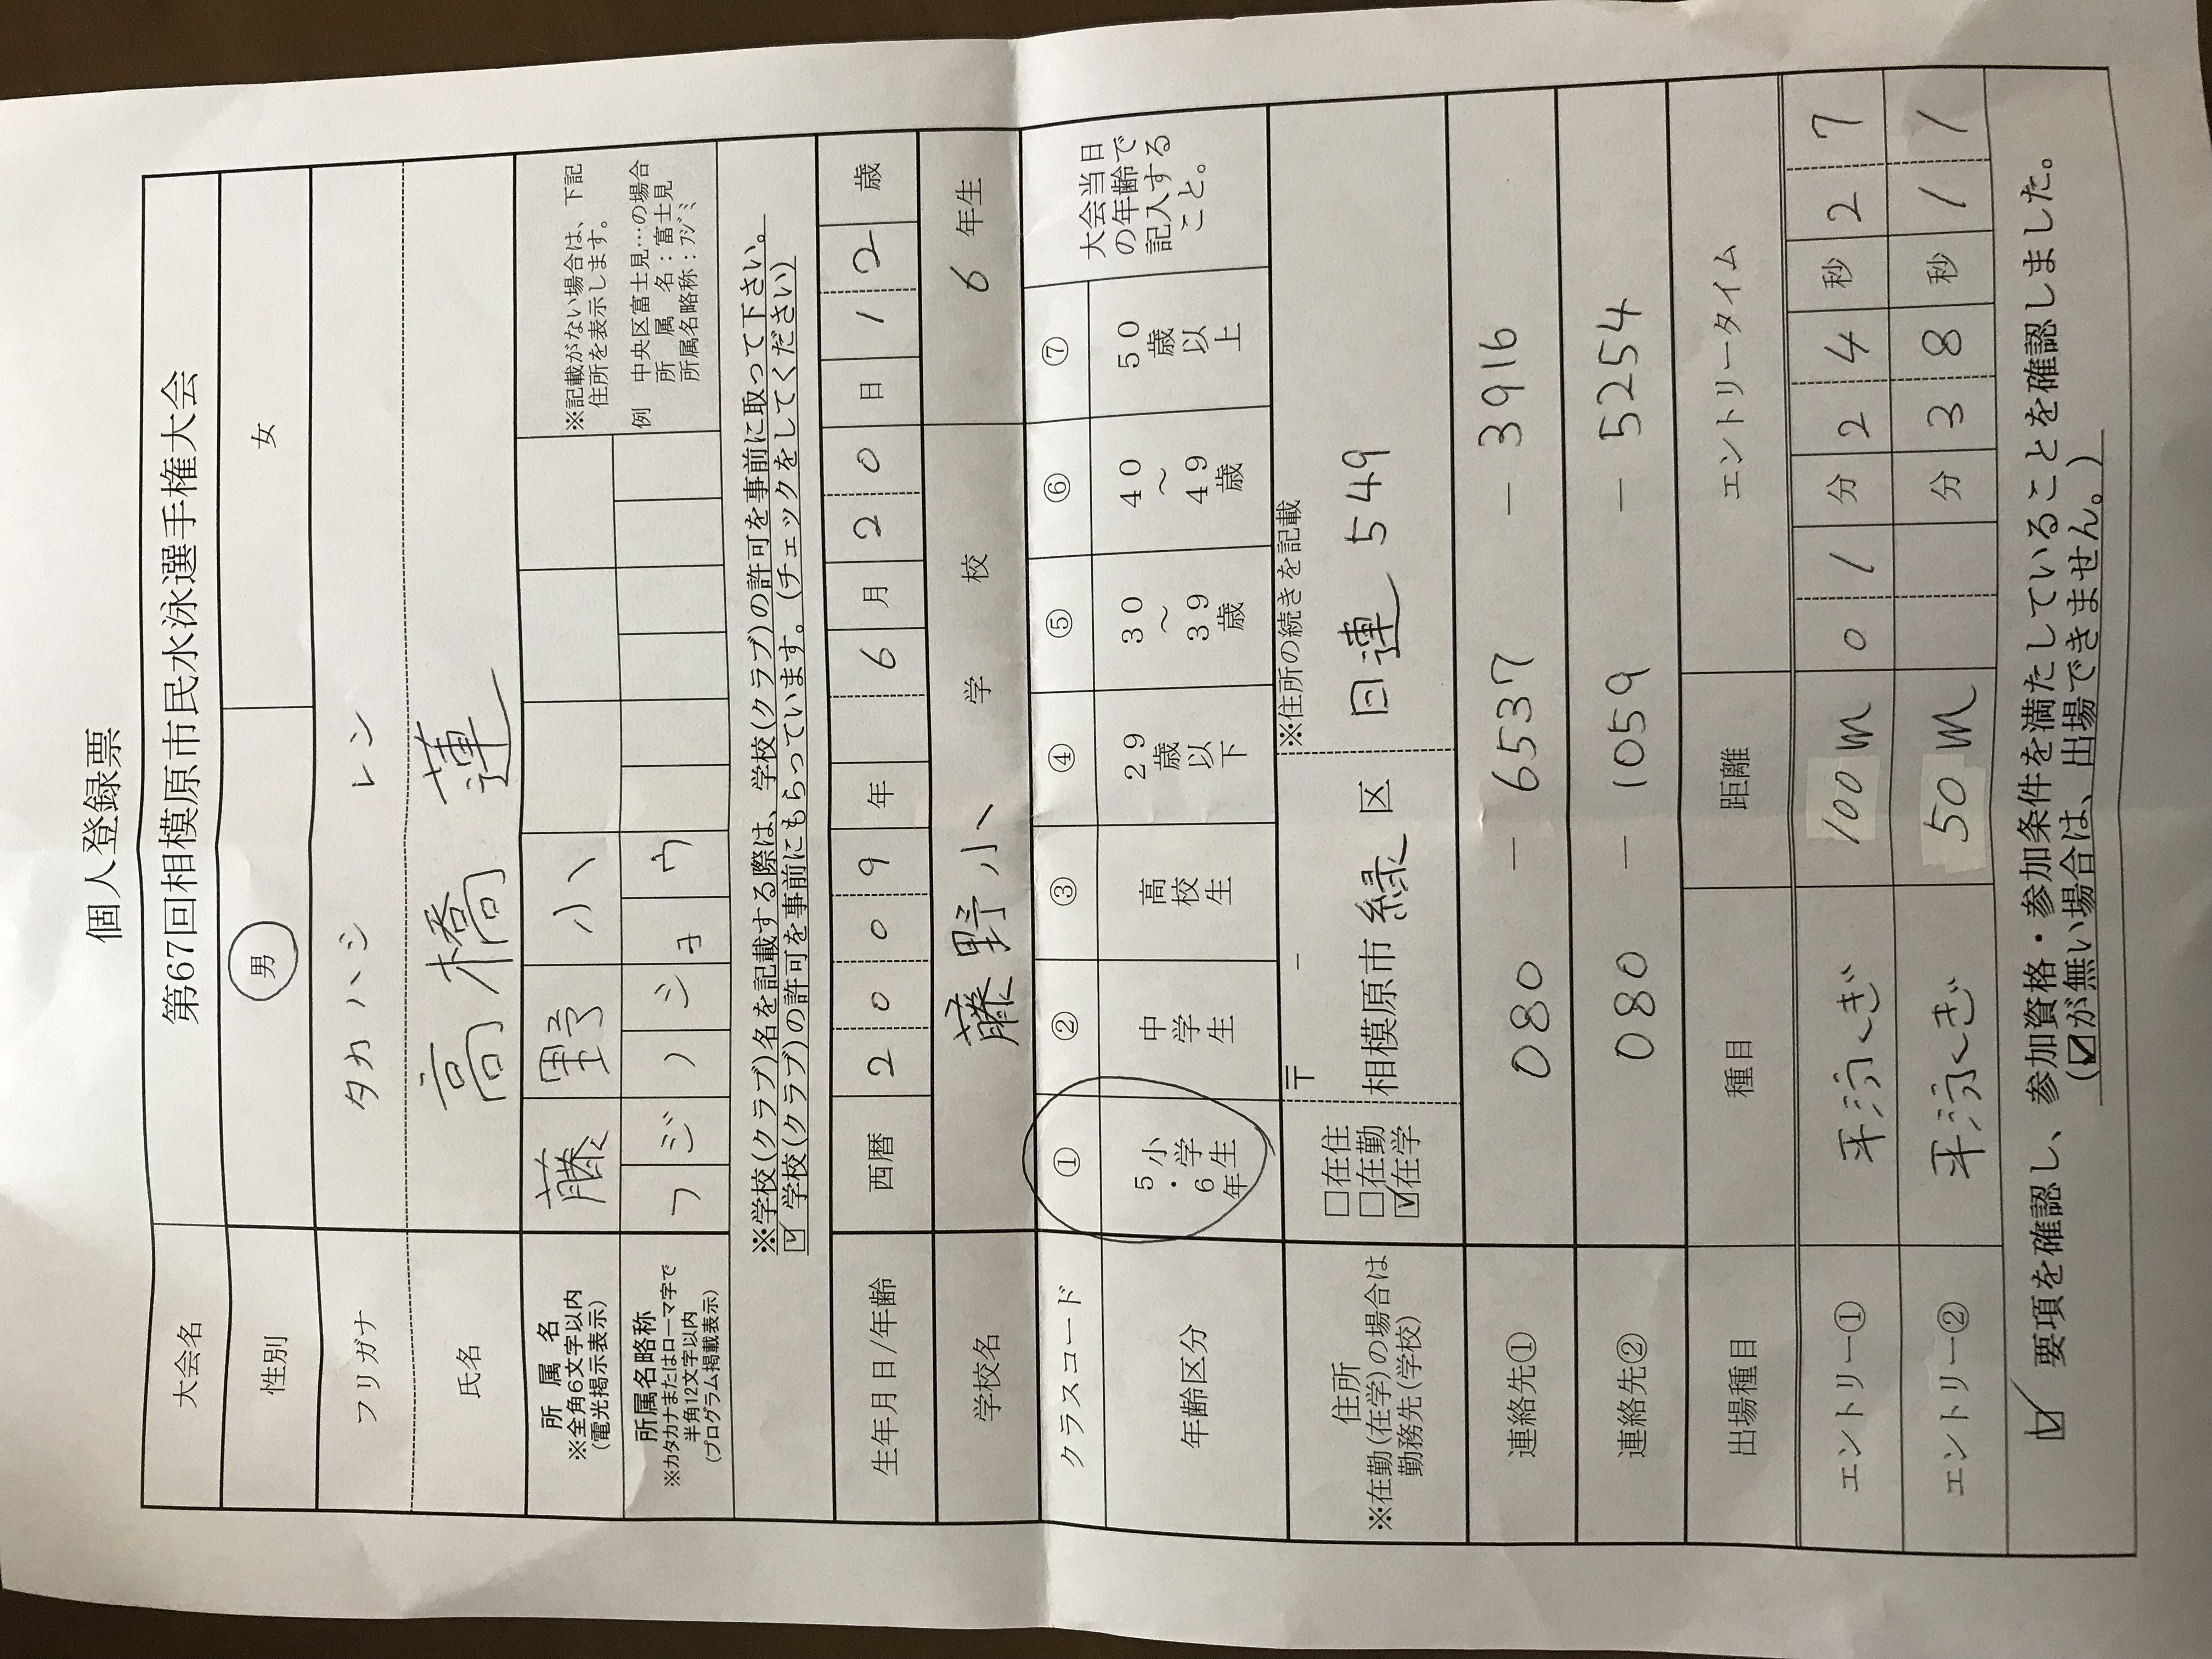 個人登録票
大会名 第67回相模原市民水泳選手権大会
性別 男 女
フリガナ タカハシ レン
氏名 高橋 蓮
所属名
※全角6文字以内
(電光掲示表示)
藤野小
※記載がない場合は、下記
住所を表示します。
所属名略称
※カタカナまたはローマ字で
半角12文字以内
(プログラム掲載表示)
フジノショウ
例 中央区富士見…の場合
所属名：富士見
所属名略称：ﾌｼﾞﾐ
※学校(クラブ)名を記載する際は、学校(クラブ)の許可を事前に取って下さい。
☑ 学校(クラブ)の許可を事前にもらっています。(チェックをしてください)
生年月日/年齢 西暦 2009年 6月20日 12歳
学校名 藤野小 学校 6年生
クラスコード ① ② ③ ④ ⑤ ⑥ ⑦
年齢区分
小学生
5・6年
中学生
高校生
29歳以下
30～39歳
40～49歳
50歳以上
大会当日
の年齢で
記入する
こと。
住所
※在勤(在学)の場合は
勤務先(学校)
□在住
□在勤
☑在学
〒 －
相模原市 緑 区
※住所の続きを記載
日連 549
連絡先① 080 － 6537 － 3916
連絡先② 080 － 1059 － 5254
出場種目 種目 距離 エントリータイム
エントリー① 平泳ぎ 100m 01分24秒27
エントリー② 平泳ぎ 50m 分38秒11
☑ 要項を確認し、参加資格・参加条件を満たしていることを確認しました。
(☑が無い場合は、出場できません。)